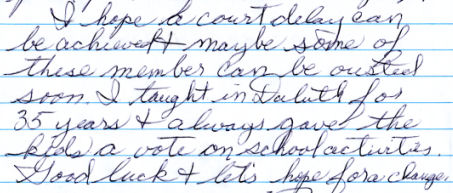 I hope a court delay can
be achieved & maybe some of
these member can be ousted
soon. I taught in Duluth for
35 years & always gave the
kids a vote on school activities.
Good luck & let's hope for a change.